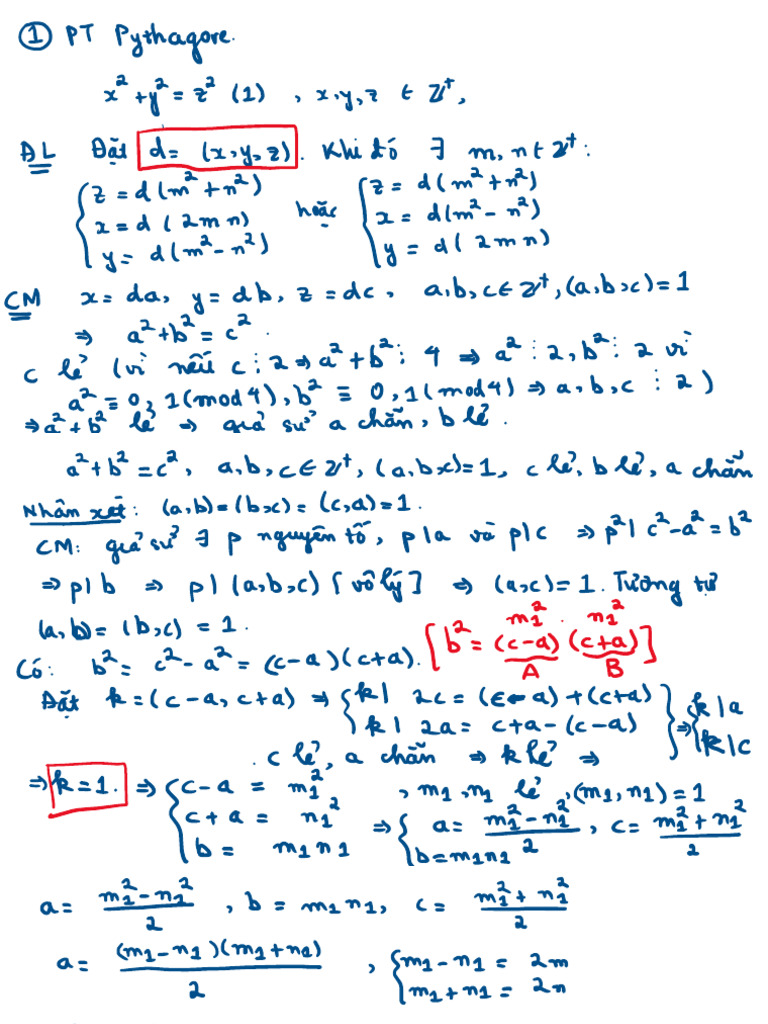 ① PT Pythagore.
x² + y² = z² (1) , x,y,z ∈ ℤ⁺,
ĐL Đặt d = (x,y,z). Khi đó ∃ m, n ∈ ℤ⁺:
{ z = d(m² + n²) x = d(2mn) y = d(m² - n²) hoặc { z = d(m² + n²) x = d(m² - n²) y = d(2mn)
CM x = da, y = db, z = dc, a,b,c ∈ ℤ⁺, (a,b,c) = 1
⇒ a² + b² = c².
c lẻ (vì nếu c ⋮ 2 ⇒ a² + b² ⋮ 4 ⇒ a² ⋮ 2, b² ⋮ 2 vì
a² ≡ 0, 1 (mod 4), b² ≡ 0, 1 (mod 4) ⇒ a, b, c ⋮ 2)
⇒ a² + b² lẻ ⇒ giả sử a chẵn, b lẻ.
a² + b² = c², a,b,c ∈ ℤ⁺, (a,b,c) = 1, c lẻ, b lẻ, a chẵn
Nhận xét: (a,b) = (b,c) = (c,a) = 1.
CM: giả sử ∃ p nguyên tố, p|a và p|c ⇒ p² | c² - a² = b²
⇒ p|b ⇒ p | (a,b,c) [vô lý] ⇒ (a,c) = 1. Tương tự
(a,b) = (b,c) = 1.
m₁² n₁²
Có: b² = c² - a² = (c-a)(c+a). [b² = (c-a)(c+a)]
A B
Đặt k = (c-a, c+a) ⇒ { k | 2c = (c-a) + (c+a) k | 2a = c+a - (c-a) } ⇒ { k|a k|c
c lẻ, a chẵn ⇒ k lẻ ⇒
⇒ k = 1. ⇒ { c-a = m₁² c+a = n₁² b = m₁n₁ , m₁, n₁ lẻ, (m₁, n₁) = 1
⇒ { a = (m₁² - n₁²)/2 , c = (m₁² + n₁²)/2 b = m₁n₁
a = (m₁² - n₁²)/2 , b = m₁n₁, c = (m₁² + n₁²)/2
a = (m₁ - n₁)(m₁ + n₁)/2 , { m₁ - n₁ = 2m m₁ + n₁ = 2n